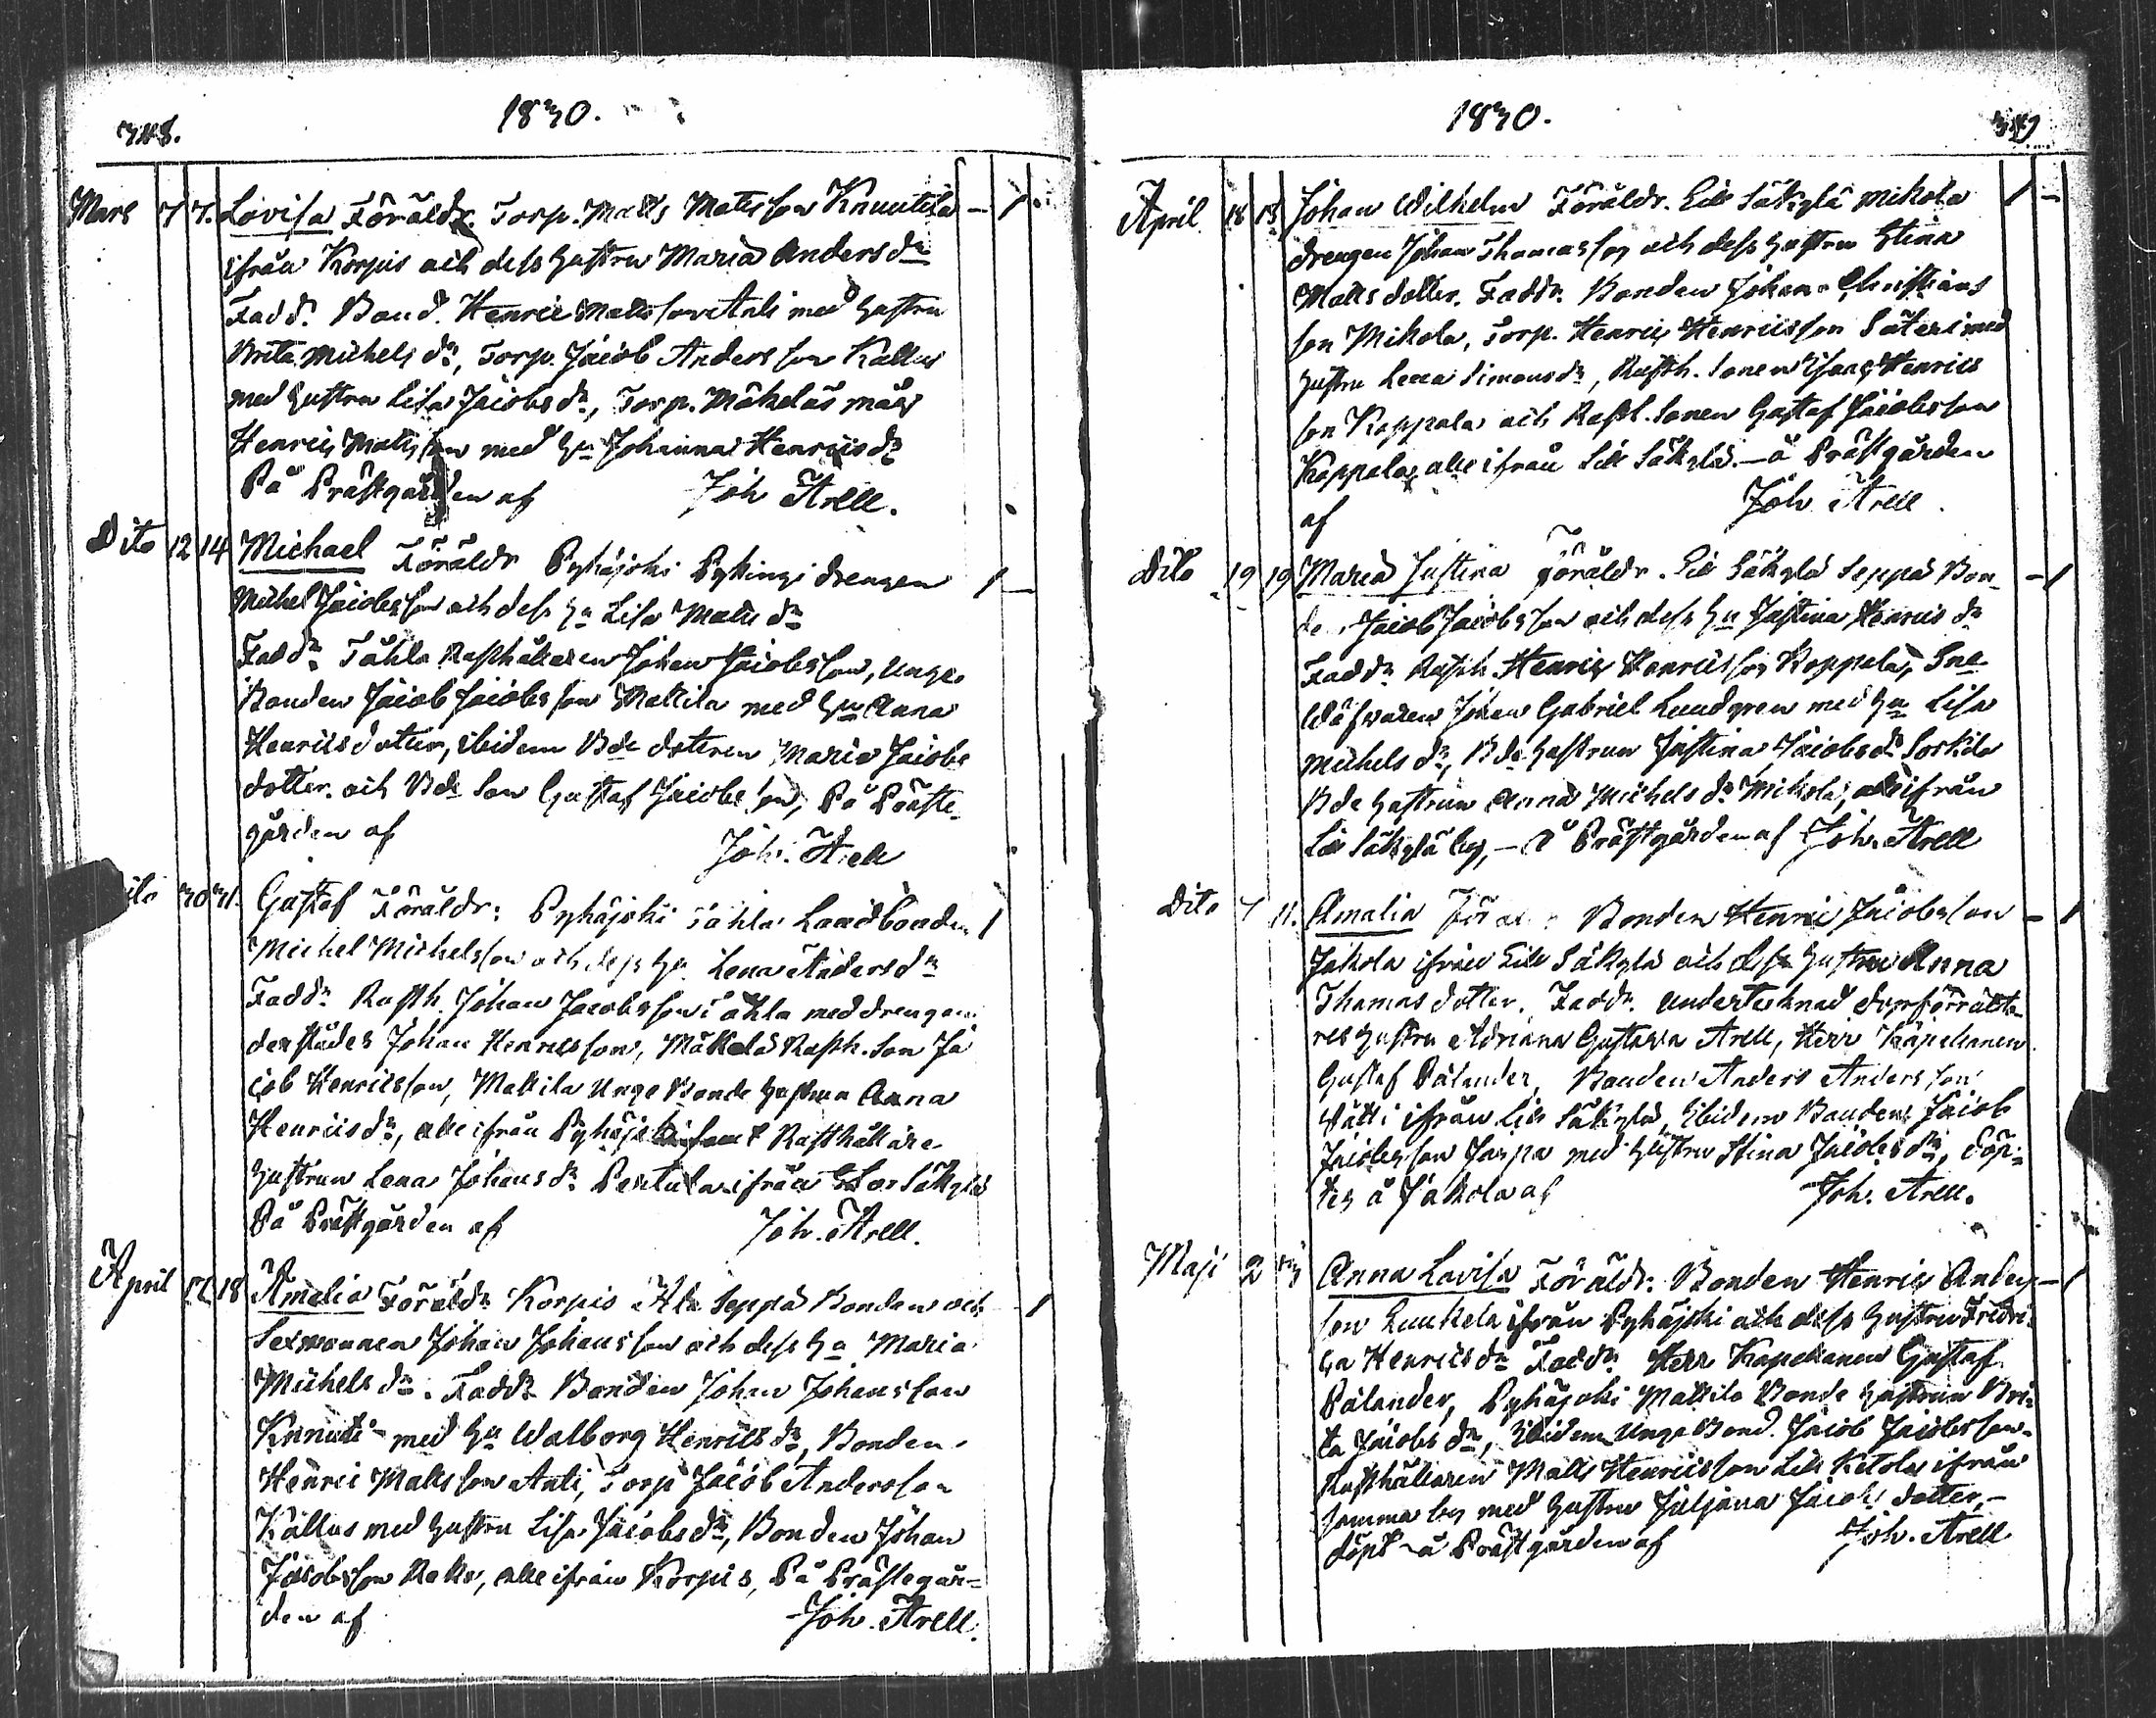 348.
1830.
Mars 7 7. Lovisa Föräldr. Torp. Matts Matsson Knuutila - 1
ifrån Korpis och dess hustru Maria Andersdr
Fadd. Bond. Henric Mattsson Anti med hustru
Brita Michelsdr, Torp. Jacob Andersson Kallus
med hustru Lisa Jacobsdr, Torp. Mäkeläs måg
Henric Matsson med hu Johanna Henricsdr
På Prästgården af Joh Arell.
Dito 12 14 Michael Föräldr Pyhäjoki Pykingi drengen 1 -
Michel Jacobsson och dess hu Lisa Matts dr
Faddr Tåhla Rusthållaren Johan Jacobsson, Unge
Bonden Jacob Jacobsson Mattila med hu Anna
Henricsdotter, ibidem Bde dotteren Maria Jacobs
dotter och Bde Son Gustaf Jacobsson, På Präste-
gården af Joh. Arell
Dito 30 31. Gustaf Föräldr: Pyhäjoki Tåhla Landbonden 1
Michel Michelsson och dess hu Lena Andersdr
Faddr Rusth. Johan Jacobsson Tåhla med drengen
derstädes Johan Henricsson, Mäkelä Rusth. Son Ja
cob Henricsson, Mattila Unge Bonde hustrun Anna
Henricsdr, alle ifrån Pyhäjoki samt Rusthållare
hustrun Lena Johansdr Pentula ifrån Stor Säkylä
På Prästgården af Joh. Arell.
April 17 18 Amalia Föräldr Korpis Ala Seppä Bonden och - 1
Sexmannen Johan Johansson och dess hu Maria
Michelsdr. Faddr Bonden Johan Johansson
Knuuti med hu Walborg Henricsdr, Bonden
Henric Mattsson Anti, Torp Jacob Andersson
Kallus med hustru Lisa Jacobsdr, Bonden Johan
Jacobsson Kake, alle ifrån Korpis, På Prästegår=
den af Joh. Arell.
1830.
349
April 18 18 Johan Wilhelm Föräldr. Lill Säkylä Mikola 1 -
drengen Johan Thomasson och dess hustru Stina
Mattsdotter. Faddr. Bonden Johan Christians
son Mikola, Torp. Henric Henricsson Säteri med
hustru Lena Simonsdr, Rusth. Sonen Isaac Henrics
son Koppala och Rusth. Sonen Gustaf Jacobsson
Koppala, alle ifrån Lill Säkylä - å Prästgården
af Joh Arell.
Dito 19 19 Maria Justina Föräldr. Lill Säkylä Seppä Bon= - 1
de Jacob Jacobsson och dess hu Justina Henricsdr
Faddr Rusth. Henric Henricsson Koppala, Sne
Wäfvaren Johan Gabriel Lundgren med hu Lisa
Michelsdr, Bde hustrun Justina Jacobsdr Sorkila
Bde hustrun Anna Michelsdr Mikola, alle ifrån
Lill Säkylä by, - å Prästgården af Joh. Arell
Dito 7 11. Amalia Föräldr Bonden Henric Jacobsson - 1
Jakola ifrån Lill Säkylä och dess hustru Anna
Thomasdotter. Faddr. undertecknad dopförrätta-
res hustru Adriana Gustava Arell, Herr Kapellanen
Gustaf Pålander, Bonden Anders Andersson
ifrån Lill Säkylä, Ibidem Bonden Jacob
Jacobsson Jaspa med hustru Stina Jacobsdr, Döp=
tes å Jakola af Joh. Arell.
Maji 2 Anna Lovisa Föräldr: Bonden Henric Anders - 1
son Luukela ifrån Pyhäjoki och dess hustru Fredri=
ca Henricsdr Faddr. Herr Kapellanen Gustaf
Pålander, Pyhäjoki Mattila Bonde hustrun Bri=
ta Jacobsdr, Ibidem Unge Bond. Jacob Jacobsson
Rusthållaren Matts Henricsson Lill Ketola ifrån
samma by med hustru Juljana Jacobsdotter, -
döpt å Prästgården af Joh. Arell